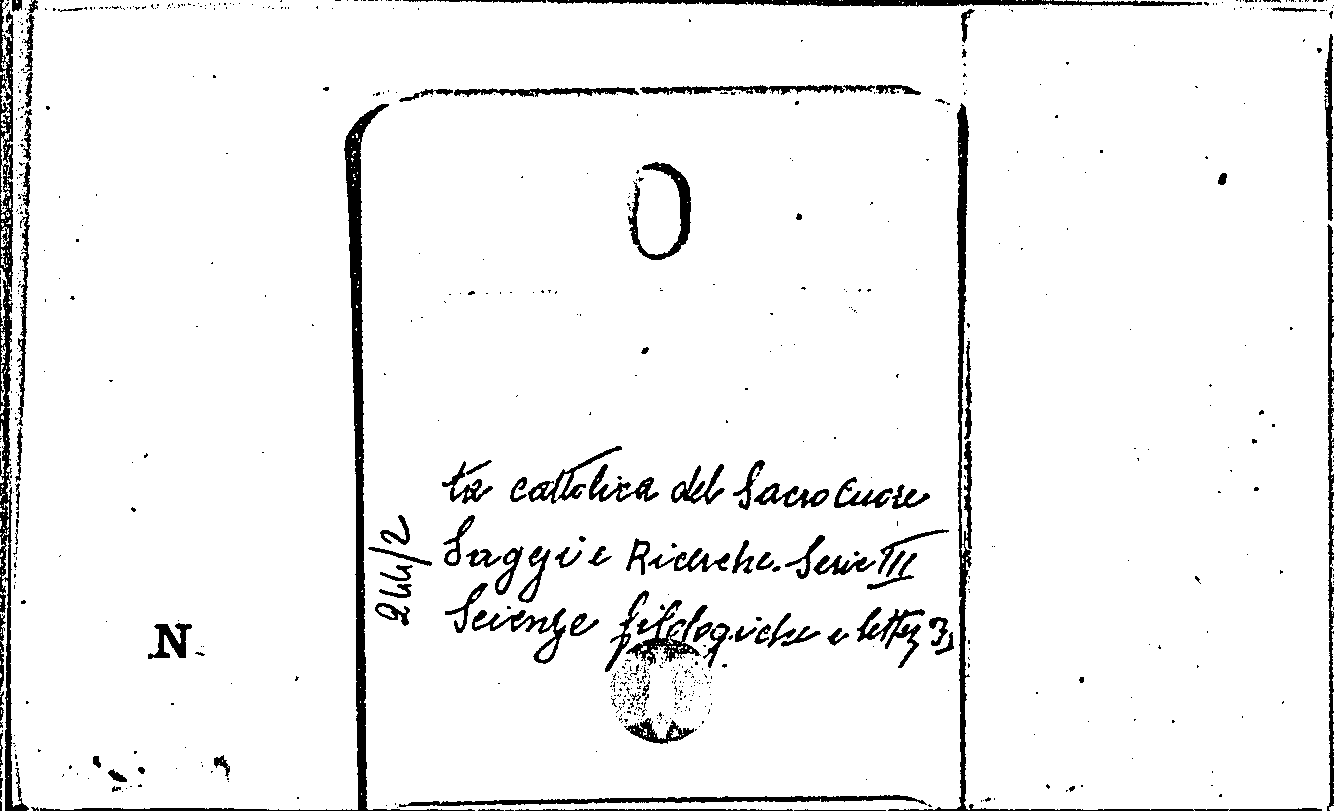 O
ta cattolica del Sacro Cuore
Saggi e Ricerche. Serie III
Scienze filologiche e lett 3,
244/2
N